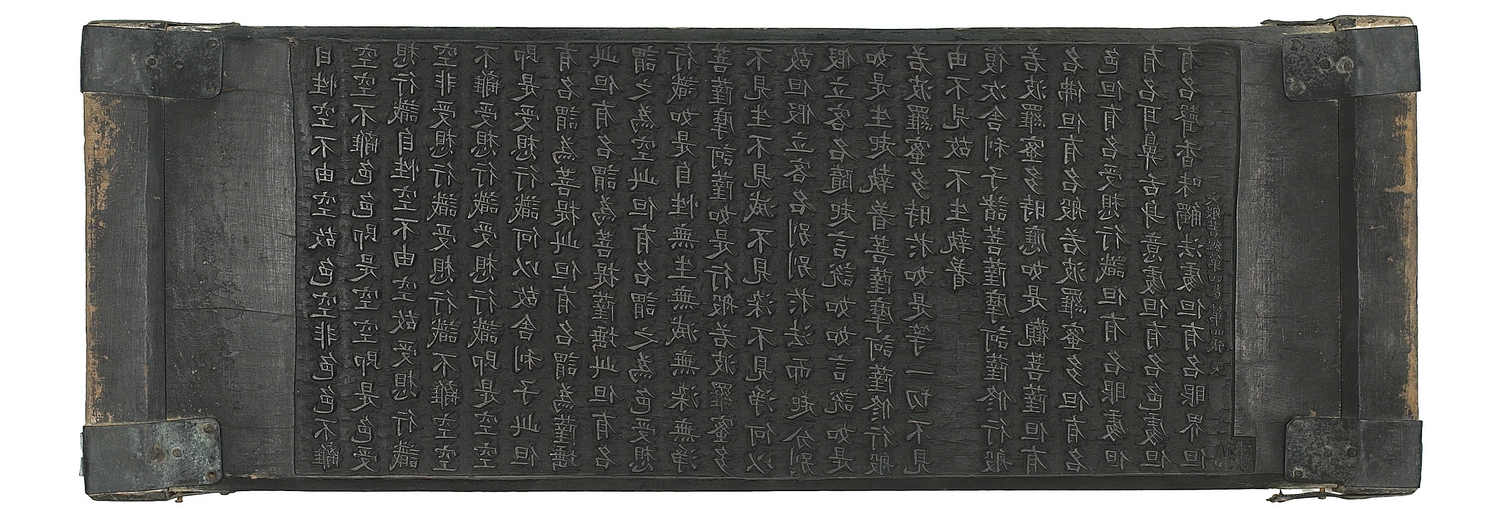 自性空不由空故色空非色色不離
空空不離色色即是空空即是色受
想行識自性空不由空故受想行識
空非受想行識受想行識不離空空
不離受想行識受想行識即是空空
即是受想行識何以故舍利子此但
有名謂為菩提此但有名謂為薩埵
此但有名謂為菩提薩埵此但有名
謂之為空此但有名謂之為色受想
行識如是自性無生無滅無染無淨
菩薩摩訶薩如是行般若波羅蜜多
不見生不見滅不見染不見淨何以
故但假立客名別別於法而起分別
假立客名隨起言說如如言說如是
如是生起執著菩薩摩訶薩修行般
若波羅蜜多時於如是等一切不見
由不見故不生執著
復次舍利子諸菩薩摩訶薩修行般
若波羅蜜多時應如是觀菩薩但有
名佛但有名般若波羅蜜多但有名
色但有名受想行識但有名眼處但
有名耳鼻舌身意處但有名色處但
有名聲香味觸法處但有名眼界但
大般若 第 四張 天